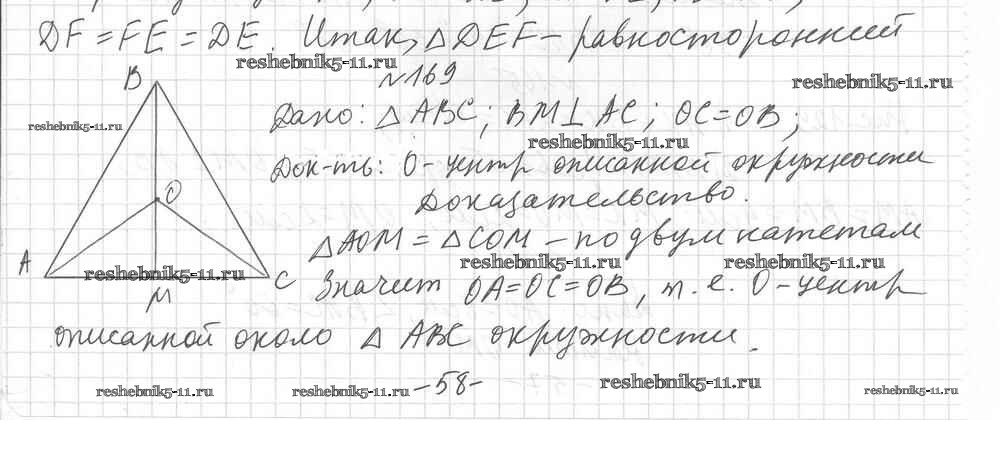 DF = FE = DE. Итак, △ DEF – равносторонний
reshebnik5-11.ru
№169
reshebnik5-11.ru
B
reshebnik5-11.ru
Дано: △ ABC; BM ⊥ AC; OC = OB;
reshebnik5-11.ru
Док-ть: O - центр описанной окружности
O
Доказательство.
△AOM = △COM – по двум катетам
A
reshebnik5-11.ru
reshebnik5-11.ru
reshebnik5-11.ru
C
M
Значит OA=OC=OB, т. е. O - центр
описанной около △ ABC окружности.
reshebnik5-11.ru
reshebnik5-11.ru
-58-
reshebnik5-11.ru
reshebnik5-11.ru